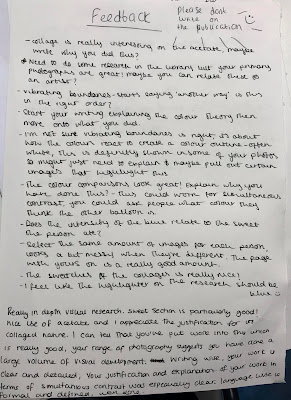 Feedback
please dont
write on
the publication
-collage is really interesting on the acetate, maybe
write why you did this?
Need to do some research in the library but your primary
photographs are great! maybe you can relate these to
an artist?
-vibrating boundaries - starts saying 'another way' is this
in the right order?
- Start your writing explaining the colour theory then
move onto what you did.
- I'm not sure vibrating boundaries is right, it's about
how the colours react to create a colour outline - often
white, this is definitely shown in some of your photos
so might just need to explain & maybe pull out certain
images that highlight this
- The colour comparisons look great! explain why you
have done this? This could work for simultaneous
contrast, you could ask people what colour they
think the other balloon is.
- Does the intensity of the blue relate to the sweet
the person ate?
- Select the same amount of images for each person
looks a bit messy when they're different. The page
with yours on is a really good amount.
- The swatches of the collages is really nice!
- I feel like the highlighter on the research should be
blue
Really in depth visual research. Sweet section is particularly good!
Nice use of acetate and I appreciate the justification for its
collaged nature. I can tell that you've put work into this which
is really good, your range of photography suggests you have done a
large volume of visual development. Writing wise, your work is
clear and detailed, your justification and explanation of your work in
terms of simultaneous contrast was especially clear. language use is
formal and defined, well done.